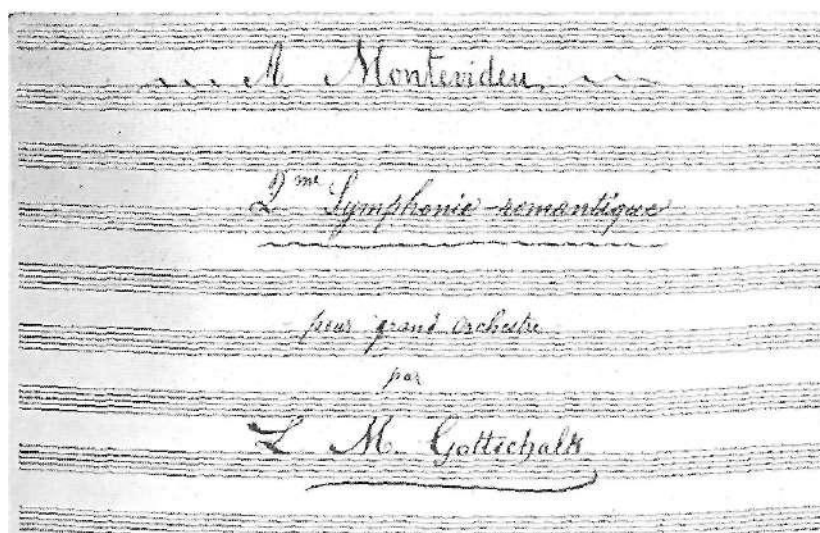 A Montevideu
2me Symphonie romantique
pour grand orchestre
par
L M. Gottschalk